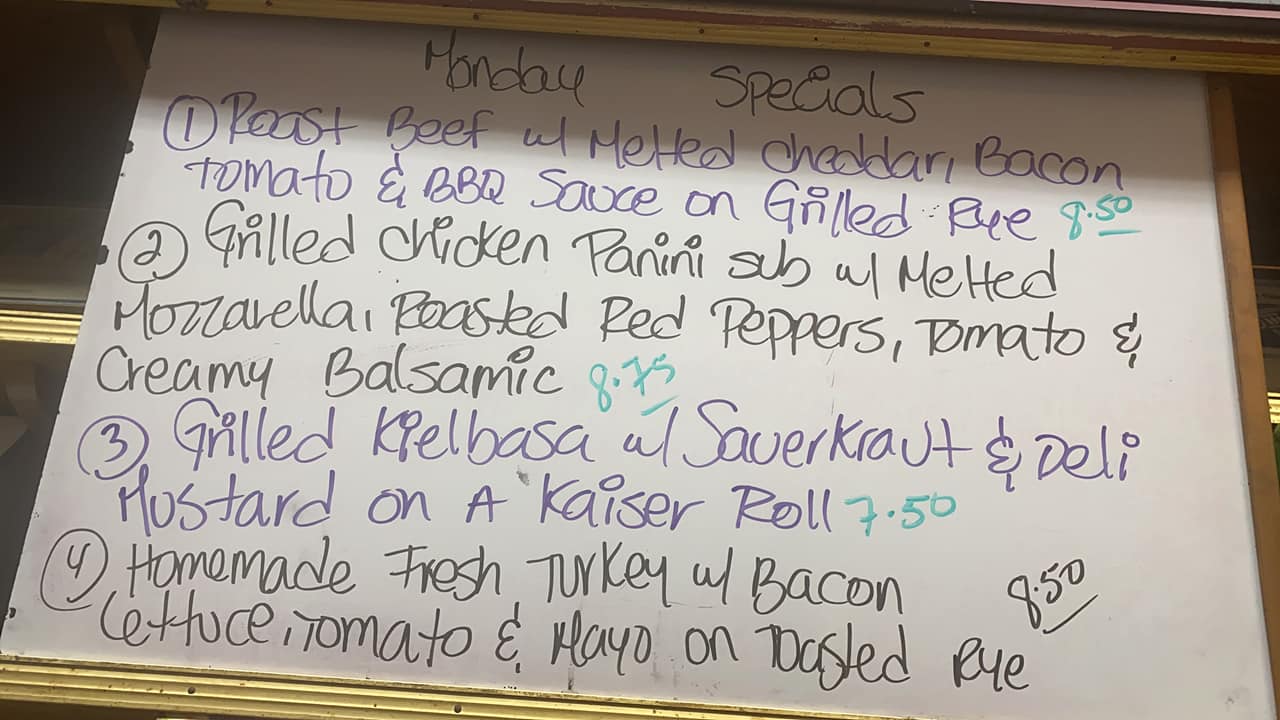 Monday Specials
① Roast Beef w/ Melted Cheddar, Bacon
Tomato & BBQ Sauce on Grilled Rye 8.50
② Grilled Chicken Panini sub w/ Melted
Mozzarella, Roasted Red Peppers, Tomato &
Creamy Balsamic 8.75
③ Grilled Kielbasa w/ Sauerkraut & Deli
Mustard on A Kaiser Roll 7.50
④ Homemade Fresh Turkey w/ Bacon 8.50
Lettuce, Tomato & Mayo on Toasted Rye